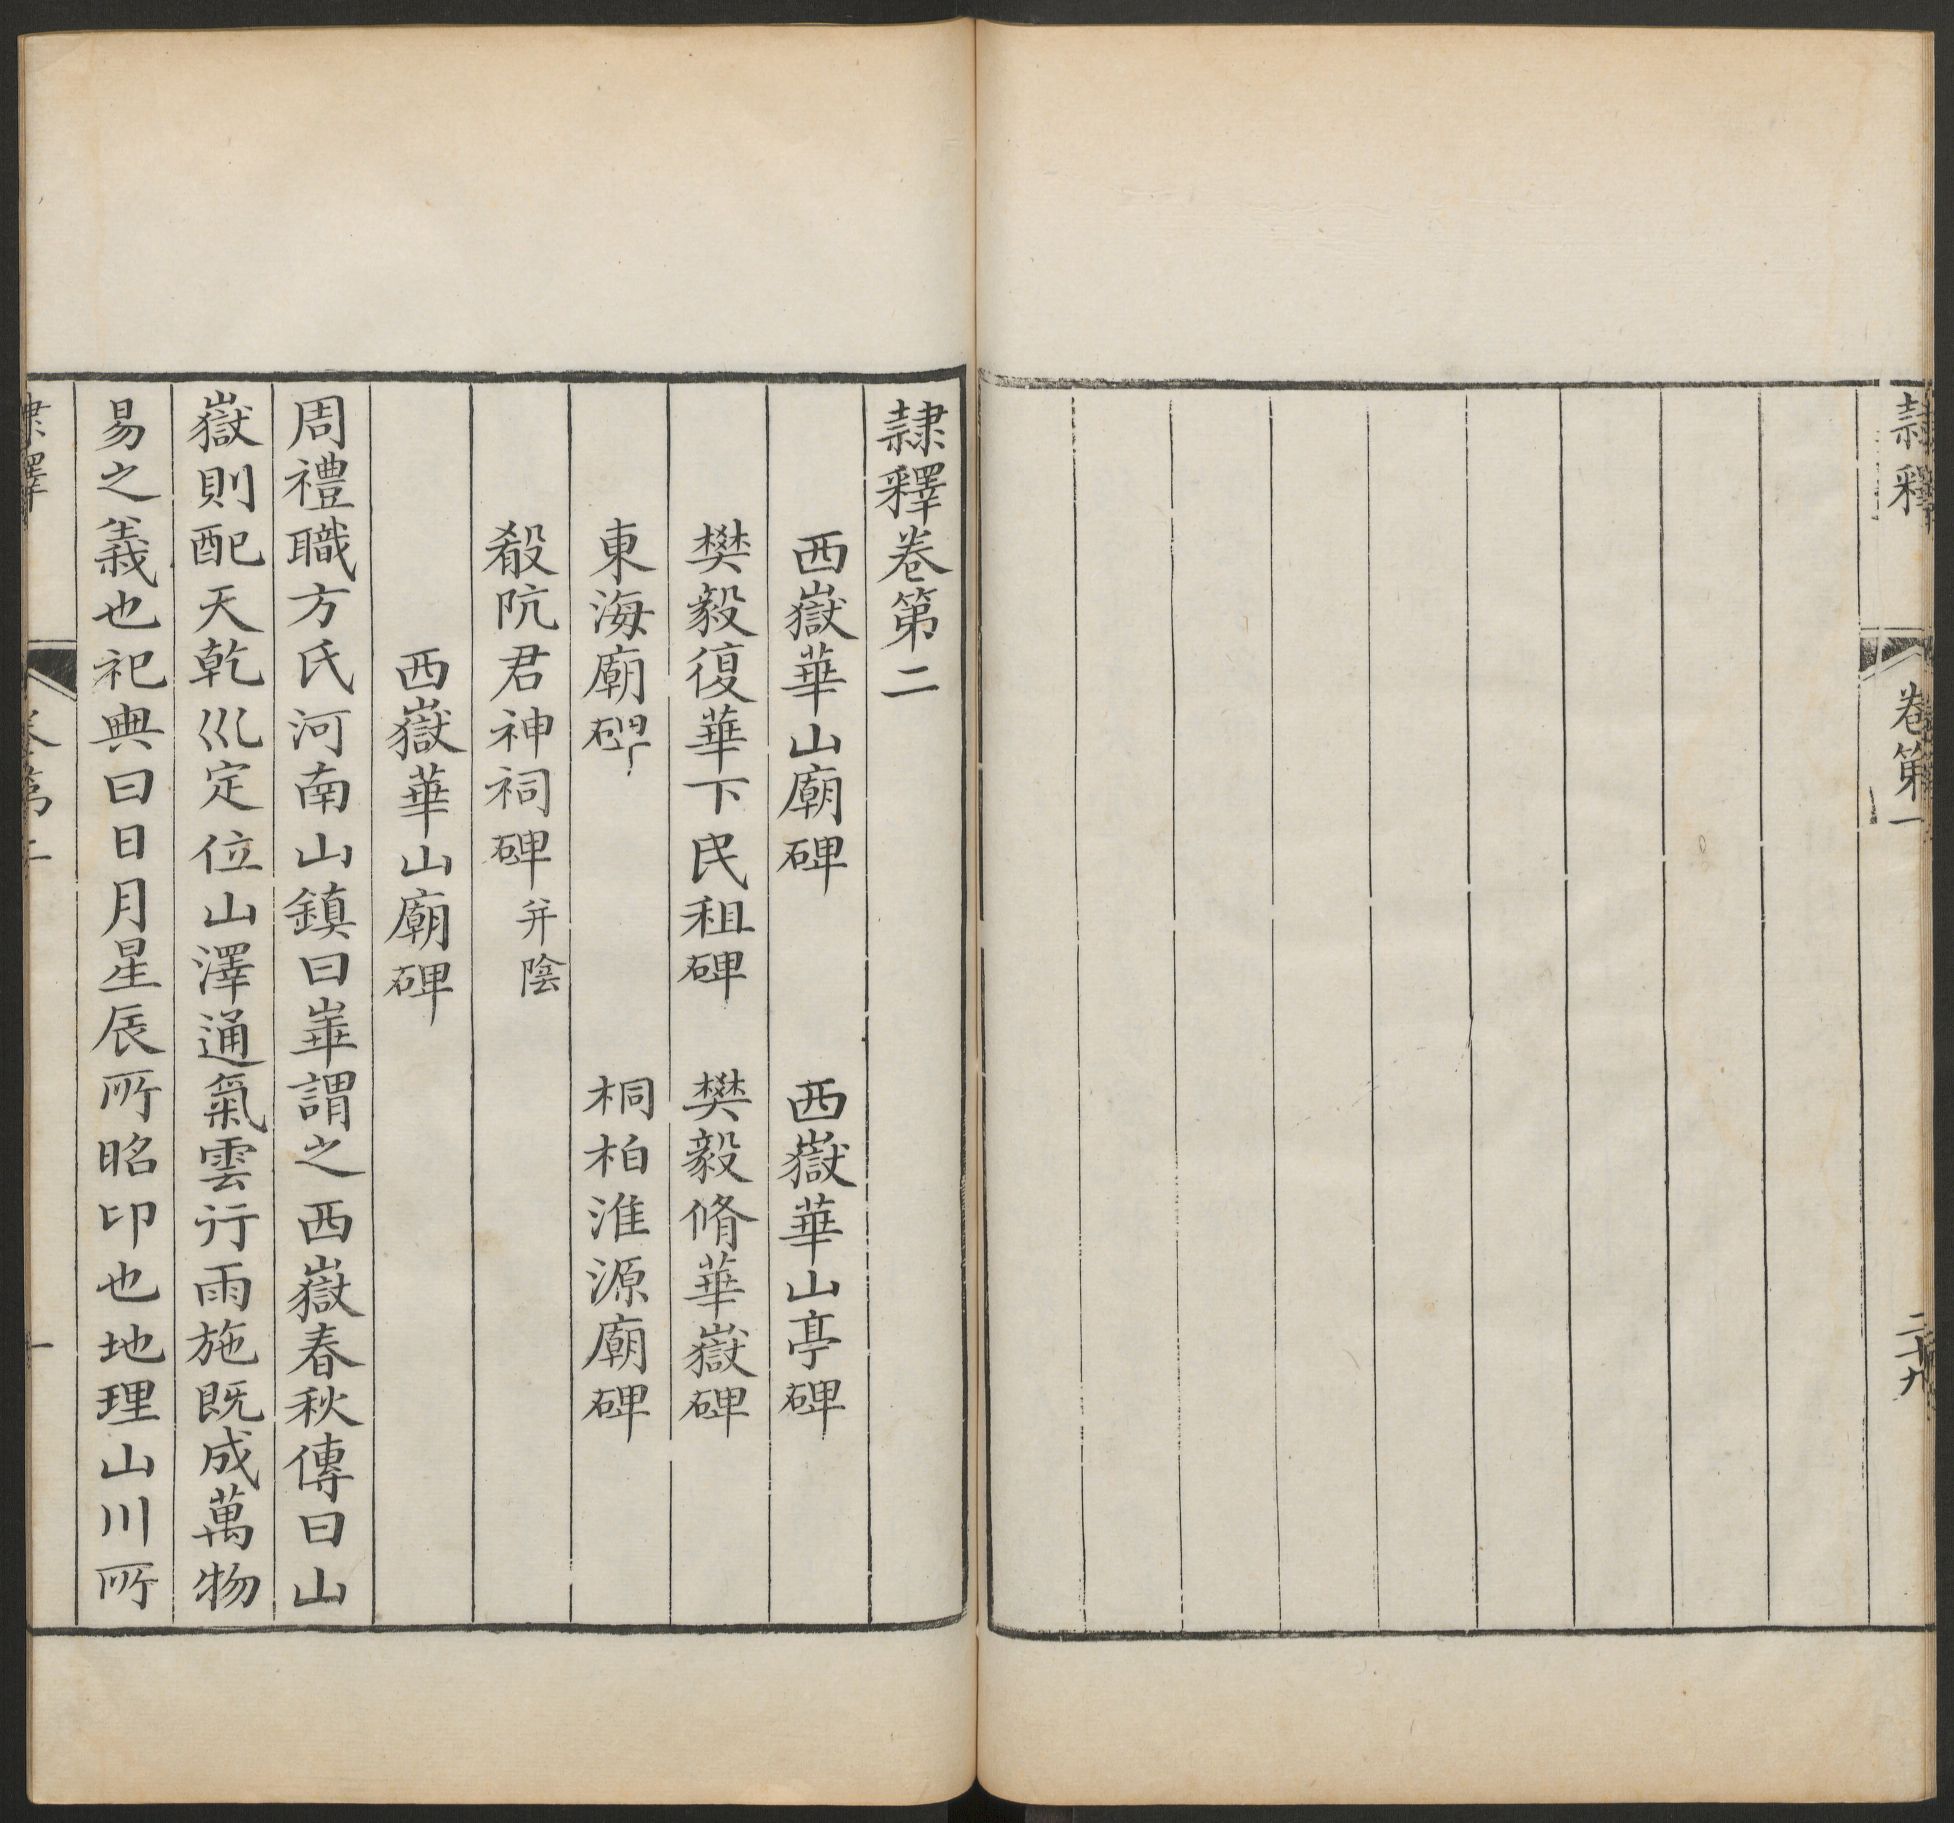 隷釋
卷第一
二十九
隷釋卷第二
西嶽華山廟碑 西嶽華山亭碑
樊毅復華下民租碑 樊毅脩華嶽碑
東海廟碑 桐柏淮源廟碑
殽阬君神祠碑 并陰
西嶽華山廟碑
周禮職方氏河南山鎮曰崋謂之西嶽春秋傳曰山
嶽則配天乾巛定位山澤通氣雲行雨施既成萬物
易之義也祀典曰日月星辰所昭卬也地理山川所
隷釋
卷第二
一